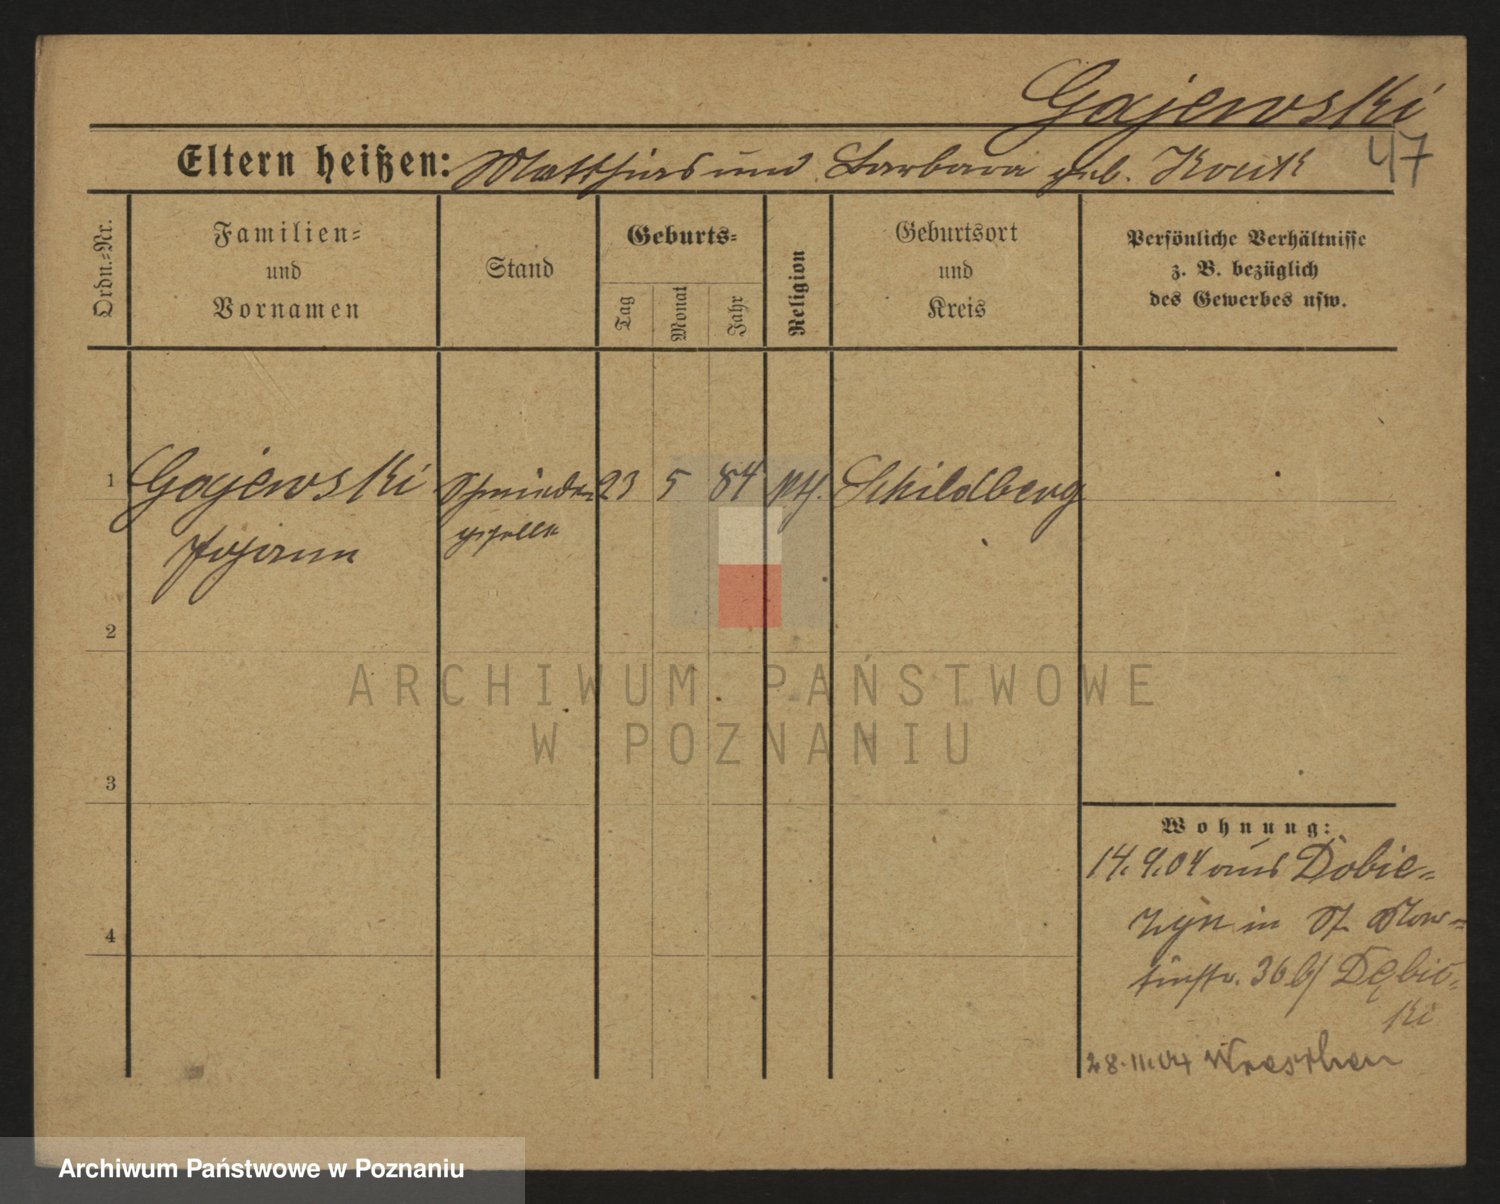 Gajewski
47
Eltern heißen: Matthias und Barbara geb.
Ordn.-Nr.
Familien-
und
Vornamen
Stand
Geburts-
Tag
Monat
Jahr
Religion
Geburtsort
und
Kreis
Persönliche Verhältnisse
z. B. bezüglich
des Gewerbes usw.
1
Gajewski Schmiede 23 5 84 kth. Schildberg
Johann geselle
2
ARCHIWUM PAŃSTWOWE
W POZNANIU
3
Wohnung:
14. 9. 04 aus Dobie-
zyn in St.
4
36 b/ Dębic-
ki
28.11.04 Wreschen
Archiwum Państwowe w Poznaniu